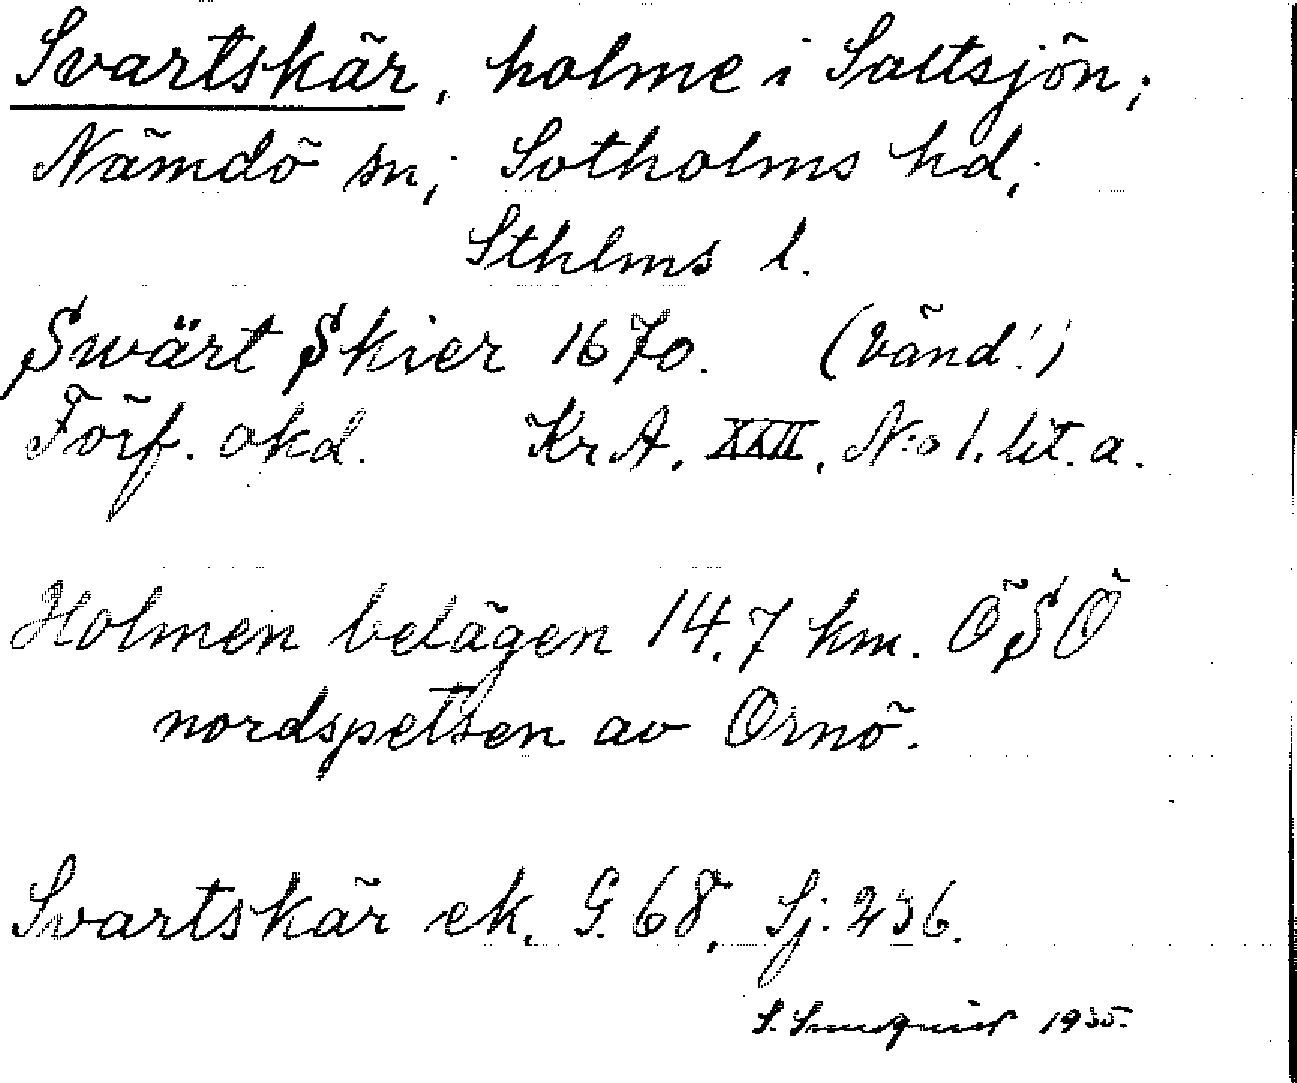 Svartskär, holme i Saltsjön;
Nämdö sn; Sotholms hd;
Sthlms l.
Swärt Skier 1670. (Vänd!)
Förf. okd. KrA. XXII, N:o 1. lit. a.
Holmen belägen 14.7 km. ÖSÖ
nordspetsen av Ornö.
Svartskär ek. G. 68, Sj: 236.
S. 1935.